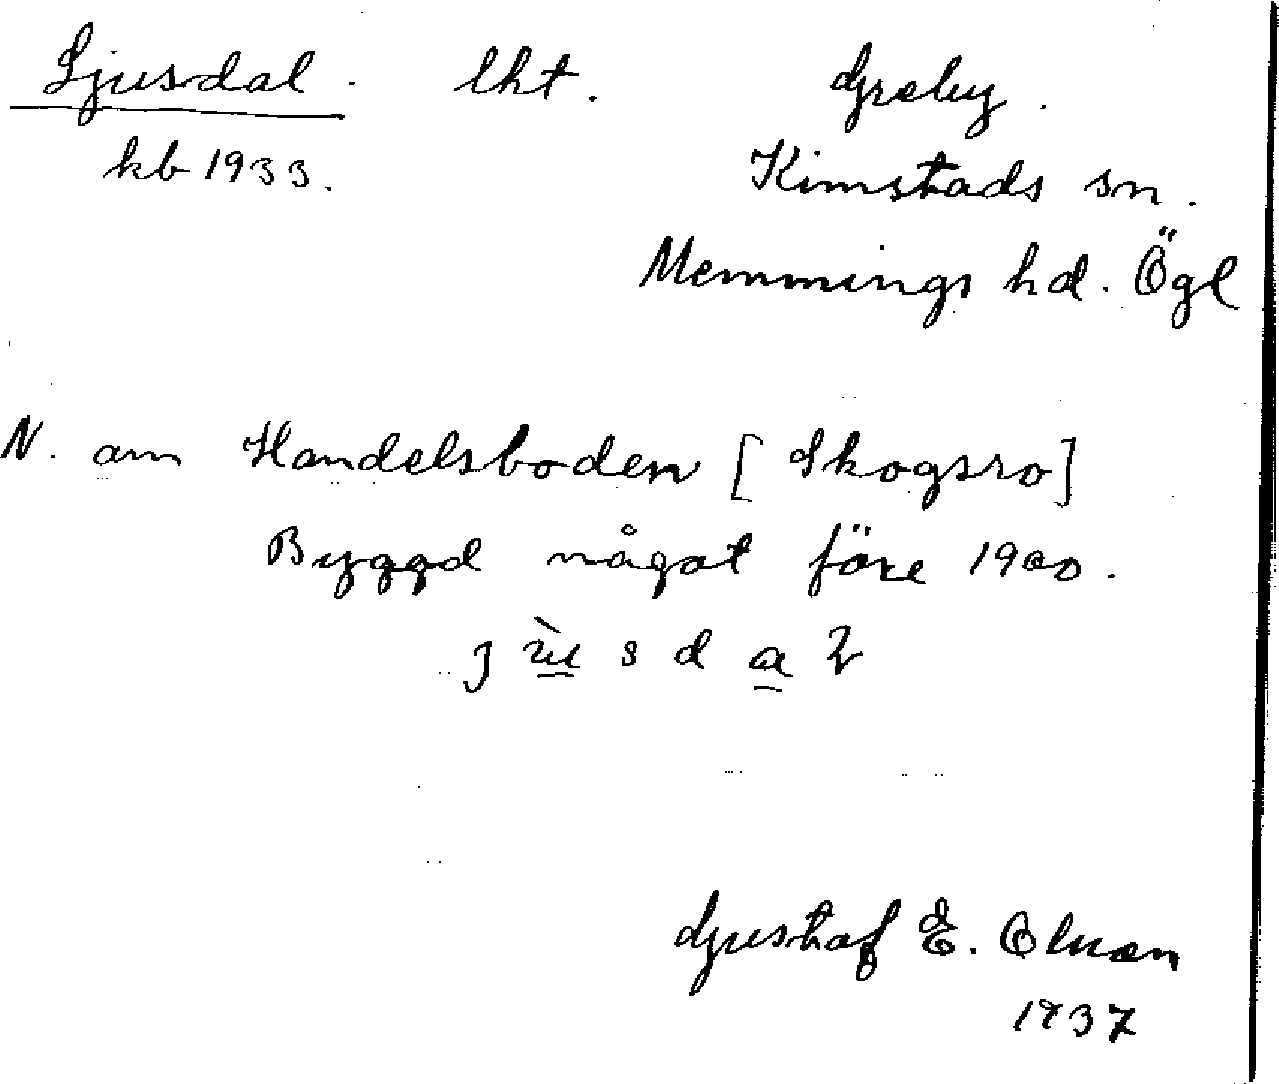 Ljusdal. lht. Greby.
kb 1933. Kimstads sn.
Memmings hd. Ögl
N. om Handelsboden [Skogsro]
Byggd något före 1900.
Gustaf E. Olsson
1937